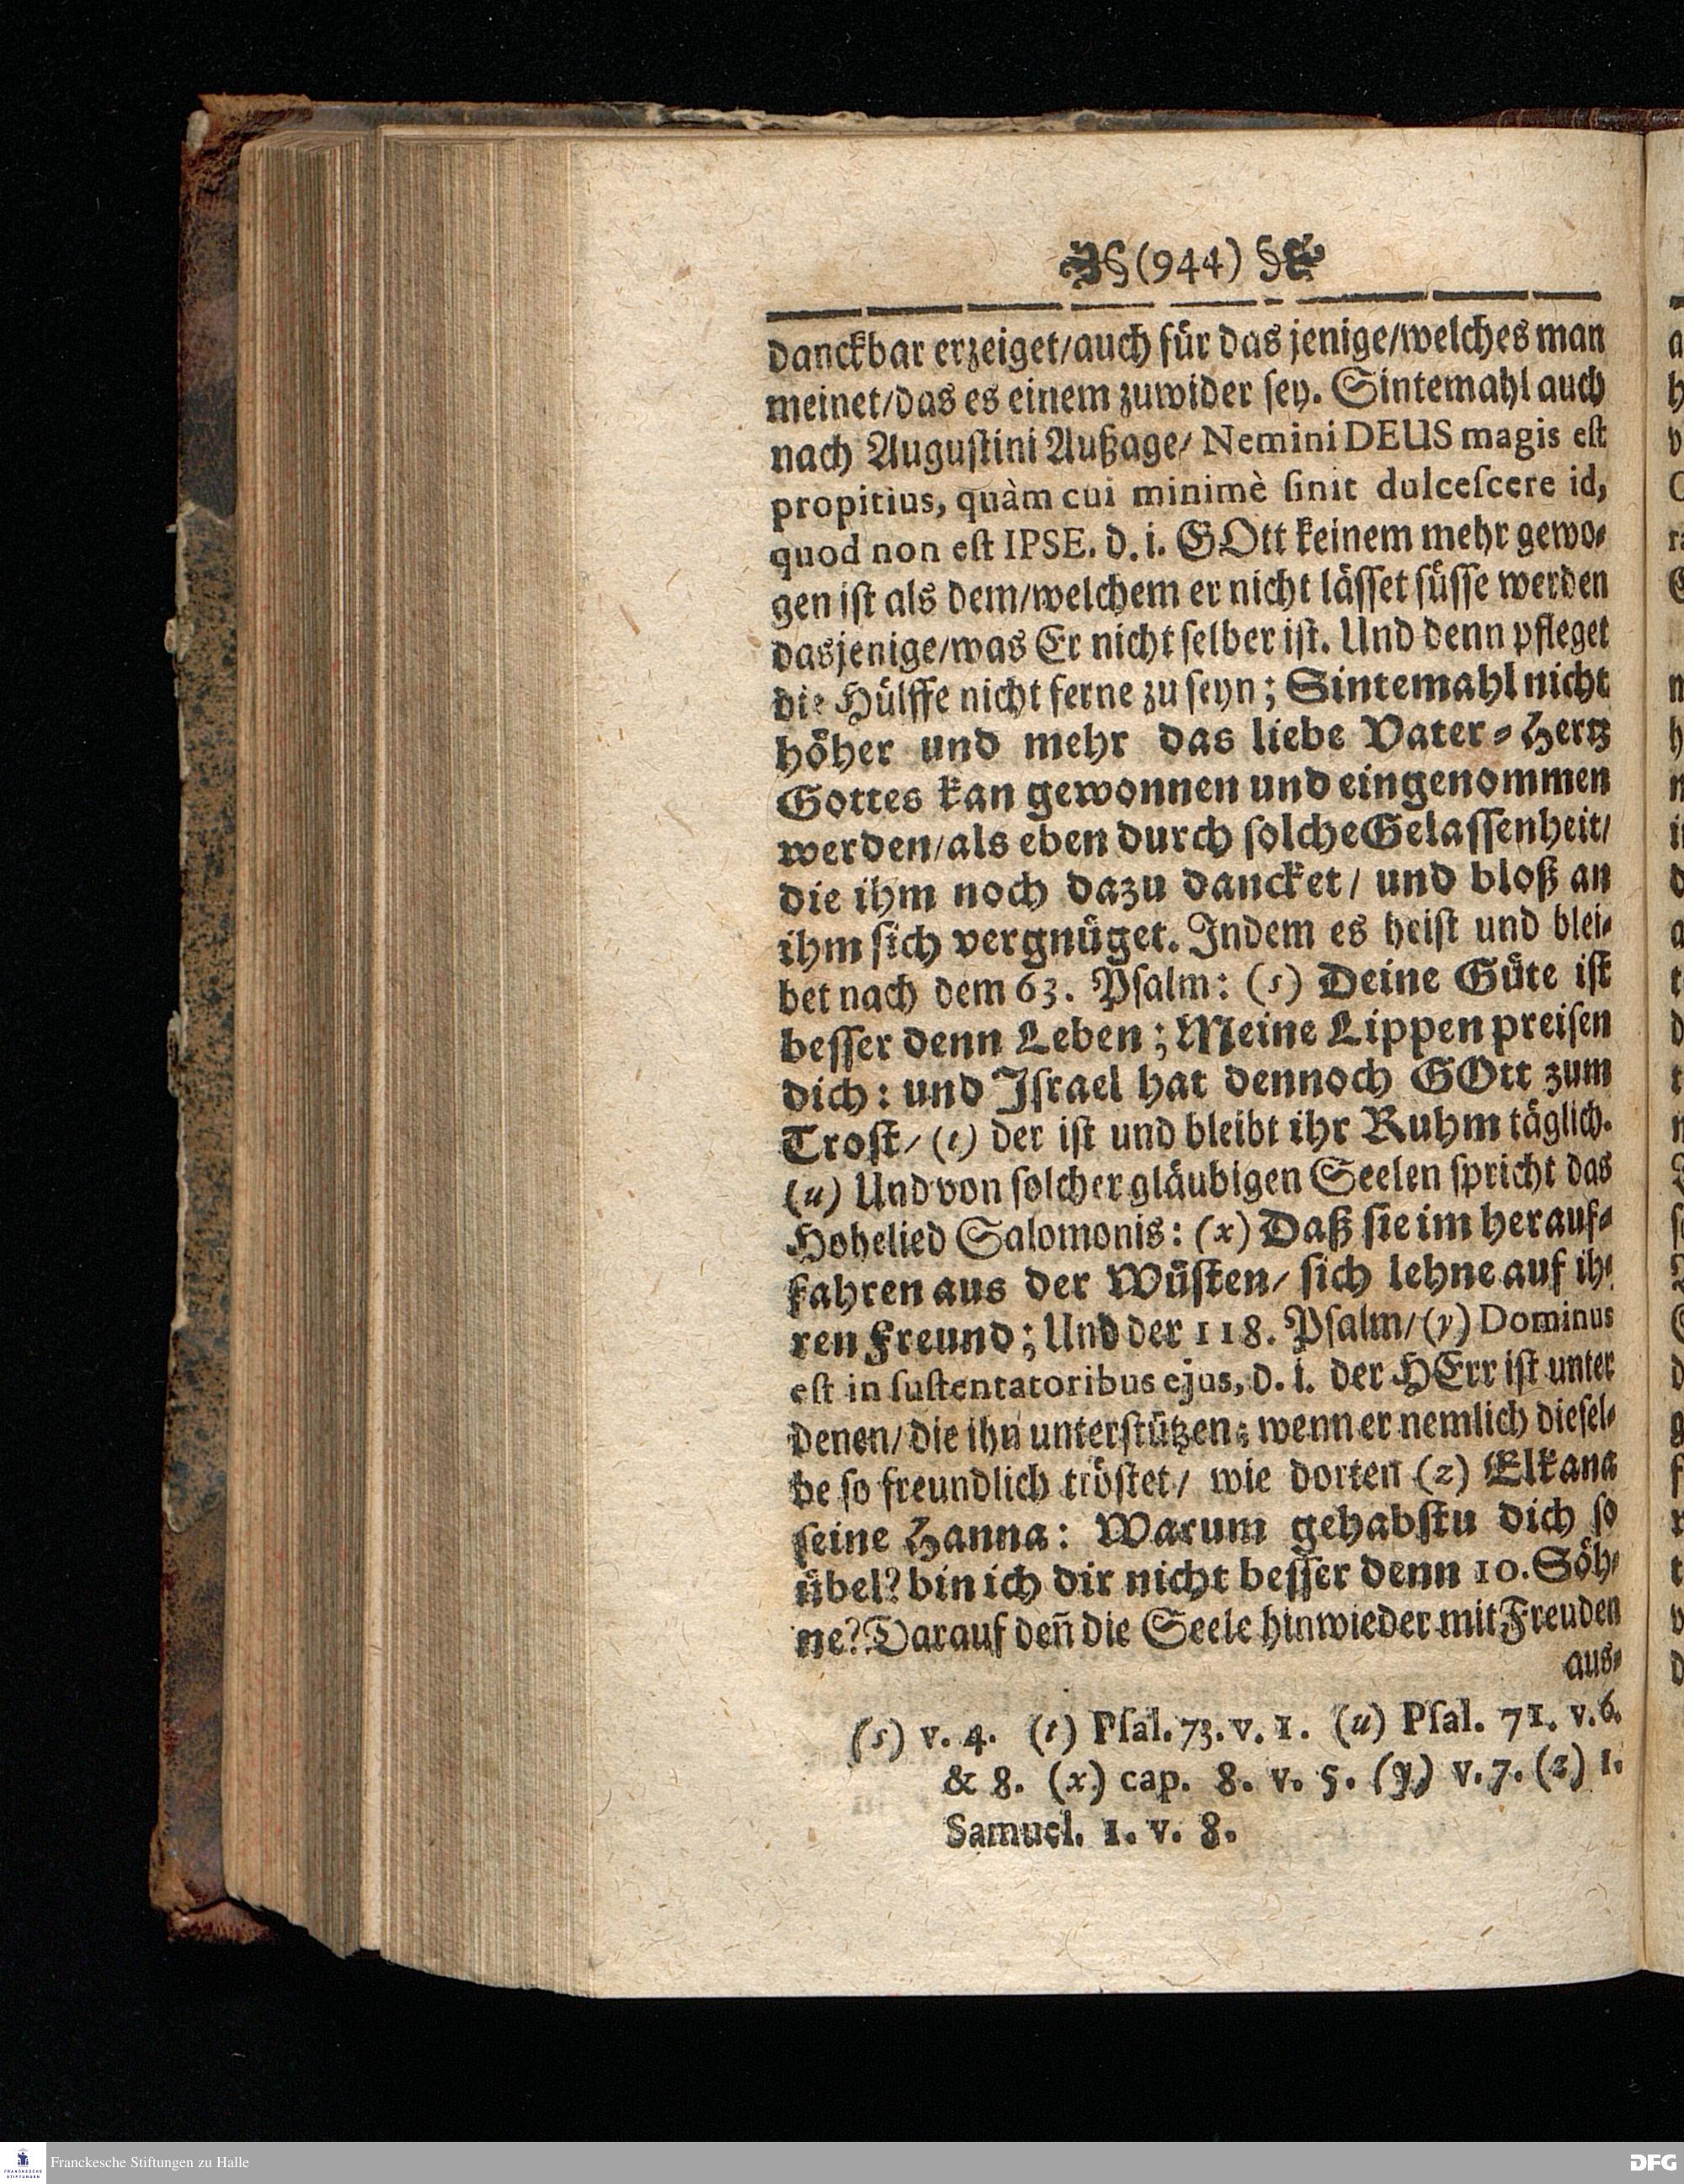 §(944)§
danckbar erzeiget/auch für das jenige/welches man
meinet/das es einem zuwider sey. Sintemahl auch
nach Augustini Außage/ Nemini DEUS magis est
propitius, quàm cui minimè sinit dulcescere id,
quod non est IPSE. d. i. GOtt keinem mehr gewo-
gen ist als dem/welchem er nicht lässet süsse werden
dasjenige/was Er nicht selber ist. Und denn pfleget
die Hülffe nicht ferne zu seyn; Sintemahl nicht
höher und mehr das liebe Vater-Hertz
Gottes kan gewonnen und eingenommen
werden/als eben durch solche Gelassenheit/
die ihm noch dazu dancket/ und bloß an
ihm sich vergnüget. Indem es heist und blei-
bet nach dem 63. Psalm: (s) Deine Güte ist
besser denn Leben; Meine Lippen preisen
dich: und Israel hat dennoch GOtt zum
Trost/ (t) der ist und bleibt ihr Ruhm täglich.
(u) Und von solcher gläubigen Seelen spricht das
Hohelied Salomonis: (x) Daß sie im herauf-
fahren aus der Wüsten/ sich lehne auf ih-
ren Freund; Und der 118. Psalm/(y) Dominus
est in sustentatoribus ejus, d. i. der HErr ist unter
denen/ die ihn unterstützen; wenn er nemlich diesel-
be so freundlich tröstet/ wie dorten (z) Elkana
seine Hanna: Warum gehabstu dich so
übel? bin ich dir nicht besser denn 10. Söh-
ne? Darauf deñ die Seele hinwieder mit Freuden
aus-
(s) v. 4. (t) Psal. 73. v. 1. (u) Psal. 71. v. 6.
& 8. (x) cap. 8. v. 5. (y) v. 7. (z) 1.
Samuel. 1. v. 8.
Franckesche Stiftungen zu Halle
DFG